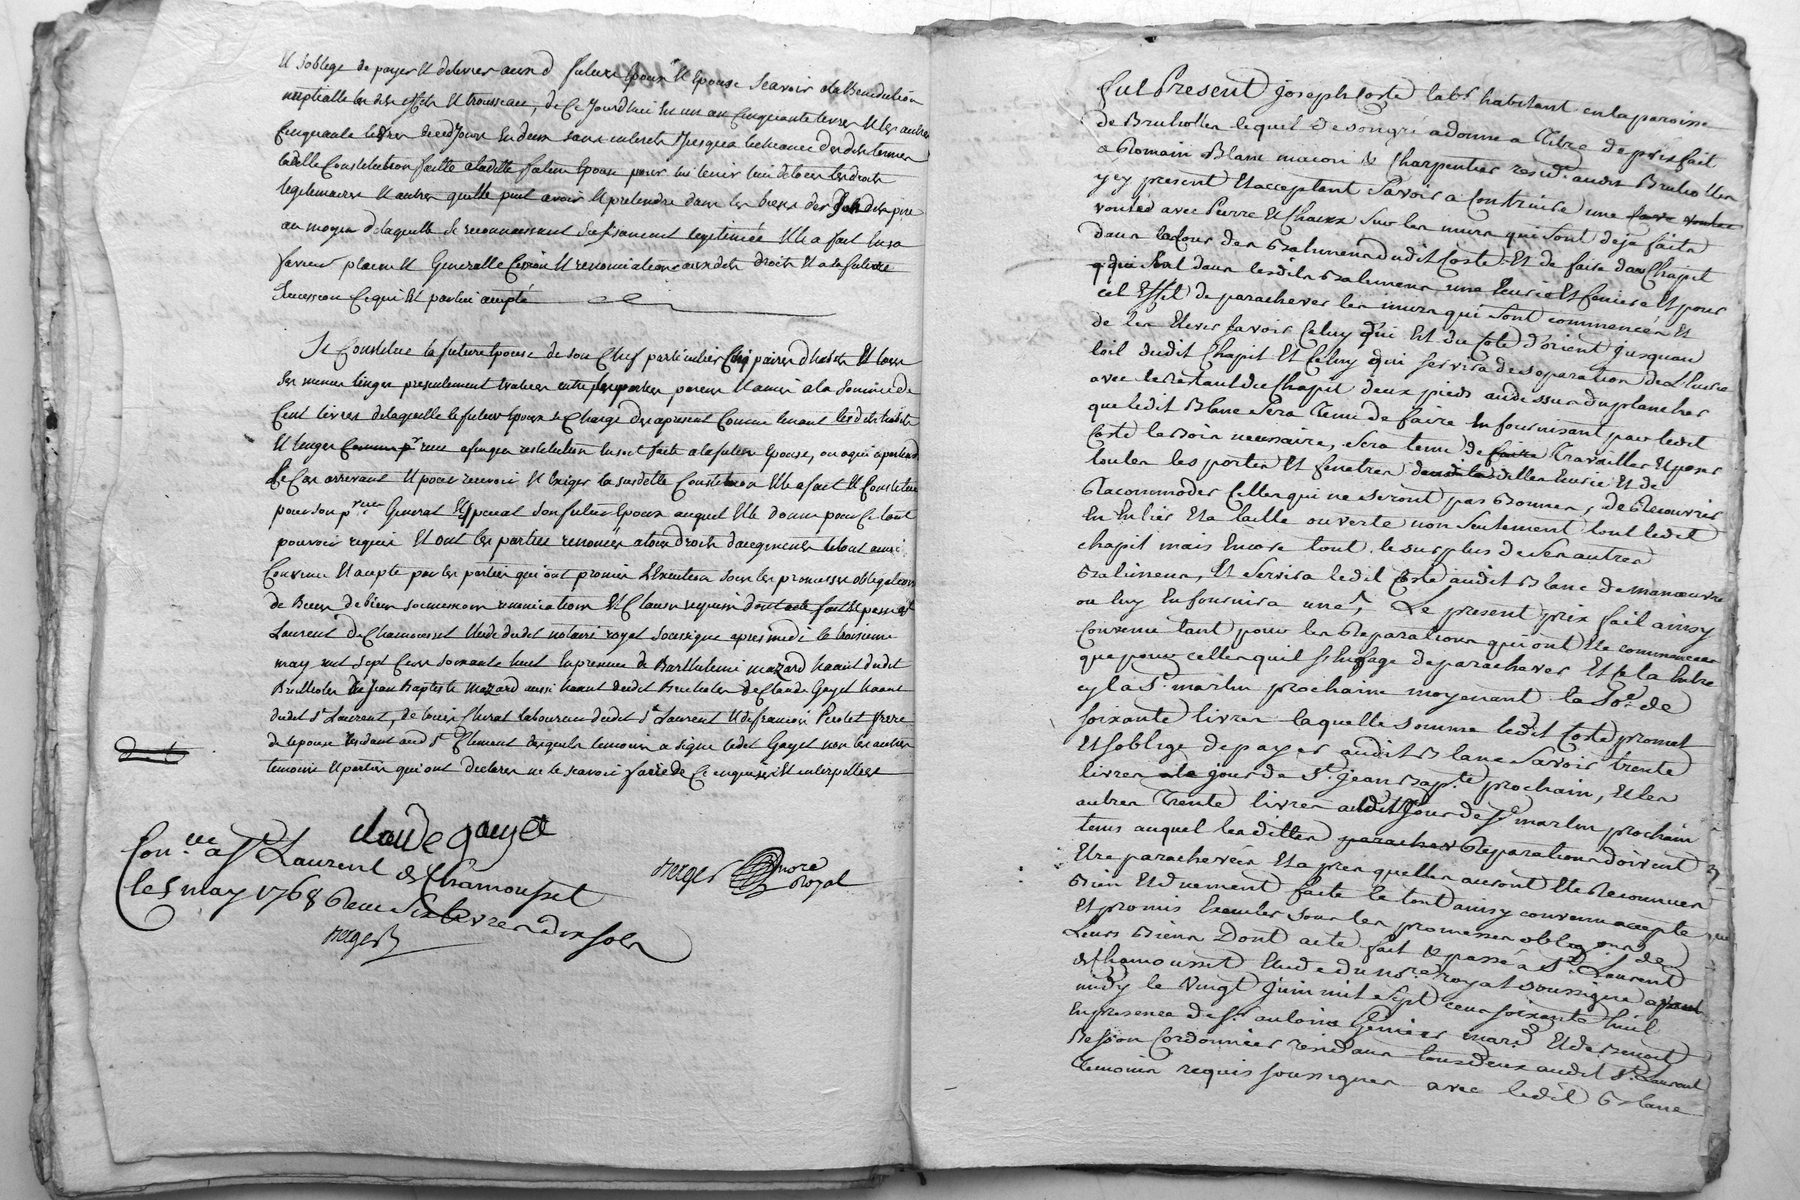 et soblige de payer et delivrer auxd futurs Epoux et Epouse scavoir ala Benediction
nuptialle lesdits effets et trousseau, de ce jourdhui en un an cinquante livres et les autres
cinquante livres audit jour en deux sans interets jusqua lecheance desdits termes
ladite Constitution faitte a ladite future Epouse pour lui tenir lieu de tous les droits
legitimaires et autres quelle peut avoir et pretendre dans les biens de sesdits pere
au moyen delaquelle se reconnaissant suffisament legitimée Elle a fait en sa
faveur plaine et Generalle Cession et renonciation auxdits droits et a la future
succession ce qui est parlui accepté
Se Constitue la future Epouse de son Chef particulier Cinq paires dhabits et tous
ses menus linges presentement evalues entre les parties parens et amis a la somme de
Cent livres delaquelle le futur Epoux se Charge des apresent Comme tenant lesdits habits
et linges afin que restitution en soit faite a la future Epouse, ou a qui apartiendra
Le Cas arrivant et pour recevoir et Exiger la susditte Constitution Elle a fait et Constitue
pour son preur General et special son futur Epoux auquel Elle donne pour ce tout
pouvoir requis Et ont les parties renoncés a tous droits daugments le tout ainsi
Convenu et accepté par les parties qui ont promis Lexecution sous les promesses obligations
de Biens de bien soumissions renonciations et Clauses requises dont acte fait et passé a St
Laurent de Chamousset Etude dudit notaire royal soussigné apres midi le troisieme
may mil sept Cens soixante huit En presence de Barthelemi mazard habitt dudit
Brullioles de Jean Baptiste Mazard aussi habitt dudit Brulioles de Claude Gayet habitt
dudit St Laurent, de Louis Chirat laboureur dudit St Laurent et de francois Perolet frere
de lepouse residant aud St Clement desquels temoins a signé ledit Gayet non les autres
temoins et parties qui ont declarés ne le scavoir faire de ce enquis et interpellés
claude gayet
Berger nore royal
Con.lle a St Laurent de Chamousset
le 5 may 1768 Receu six livres dix sols
Berger
Fut Present Joseph Coste labr habitant en la paroisse
de Brulioles lequel de son gré a donné a titre de prix fait
a Romain Blanc macon & Charpentier resid. audit Brulioles
y cy present Et acceptant Savoir a Construire une
voutes avec Pierre Et Chaux sur les murs qui sont deja faits
dans la Cour des Batimens dudit Coste. Et de faire dans le Chapit
qui sont dans lesdits Batimens une Ecurie Et feniere Et pour
cet Effet de parachever les murs qui sont commencés Et
de les Elever savoir Celuy qui Est du Coté d'orient jusquau
toit dudit Chapit Et Celuy qui servira de separation de L'Ecurie
avec le restant du Chapit deux pieds audessus du plancher
que ledit Blanc sera tenu de faire En fournissant par ledit
Coste le Bois necessaire, sera tenu de Travailler et poser
toutes les portes Et fenetres de ladite Ecurie Et de
Racommoder Celles qui ne seront pas Bonnes, de Recouvrir
En Entier Et a taille ouverte non seulement tout ledit
chapit mais Encore tout le surplus de ses autres
Batimens, Et servira ledit Coste audit Blanc de manoeuvre
ou luy En fournira un, Le present prix fait ainsy
Convenu tant pour les Reparations qui ont Eté commencées
que pour celles quil s'Engage de parachever Et ce la Entre
cy la St. martin prochaine moyenant la Soe de
soixante livres laquelle somme ledit Coste promet
Et soblige de payer audit Blanc savoir trente
livres le jour de St. Jean Bapte prochain, et les
autres Trente livres audit jour de St martin prochain
tems auquel lesdittes Reparations doivent
Etre parachevées Et apres quelles auront Eté Reconnues
Bien Et duement faite le tout ainsy convenu accepté
Et promis Executer sous les promesses obligons de
Leurs Biens Dont acte fait & passé a St. Laurent
de Chamousset Etude du nore royal soussigné avant
midy le vingt Juin mil sept cens soixante huit
En presence de Sr. antoine Genier mard Et de Benoit
Besson Cordonnier residans tous deux audit St. Laurent
Temoins requis soussignes avec ledit Blanc